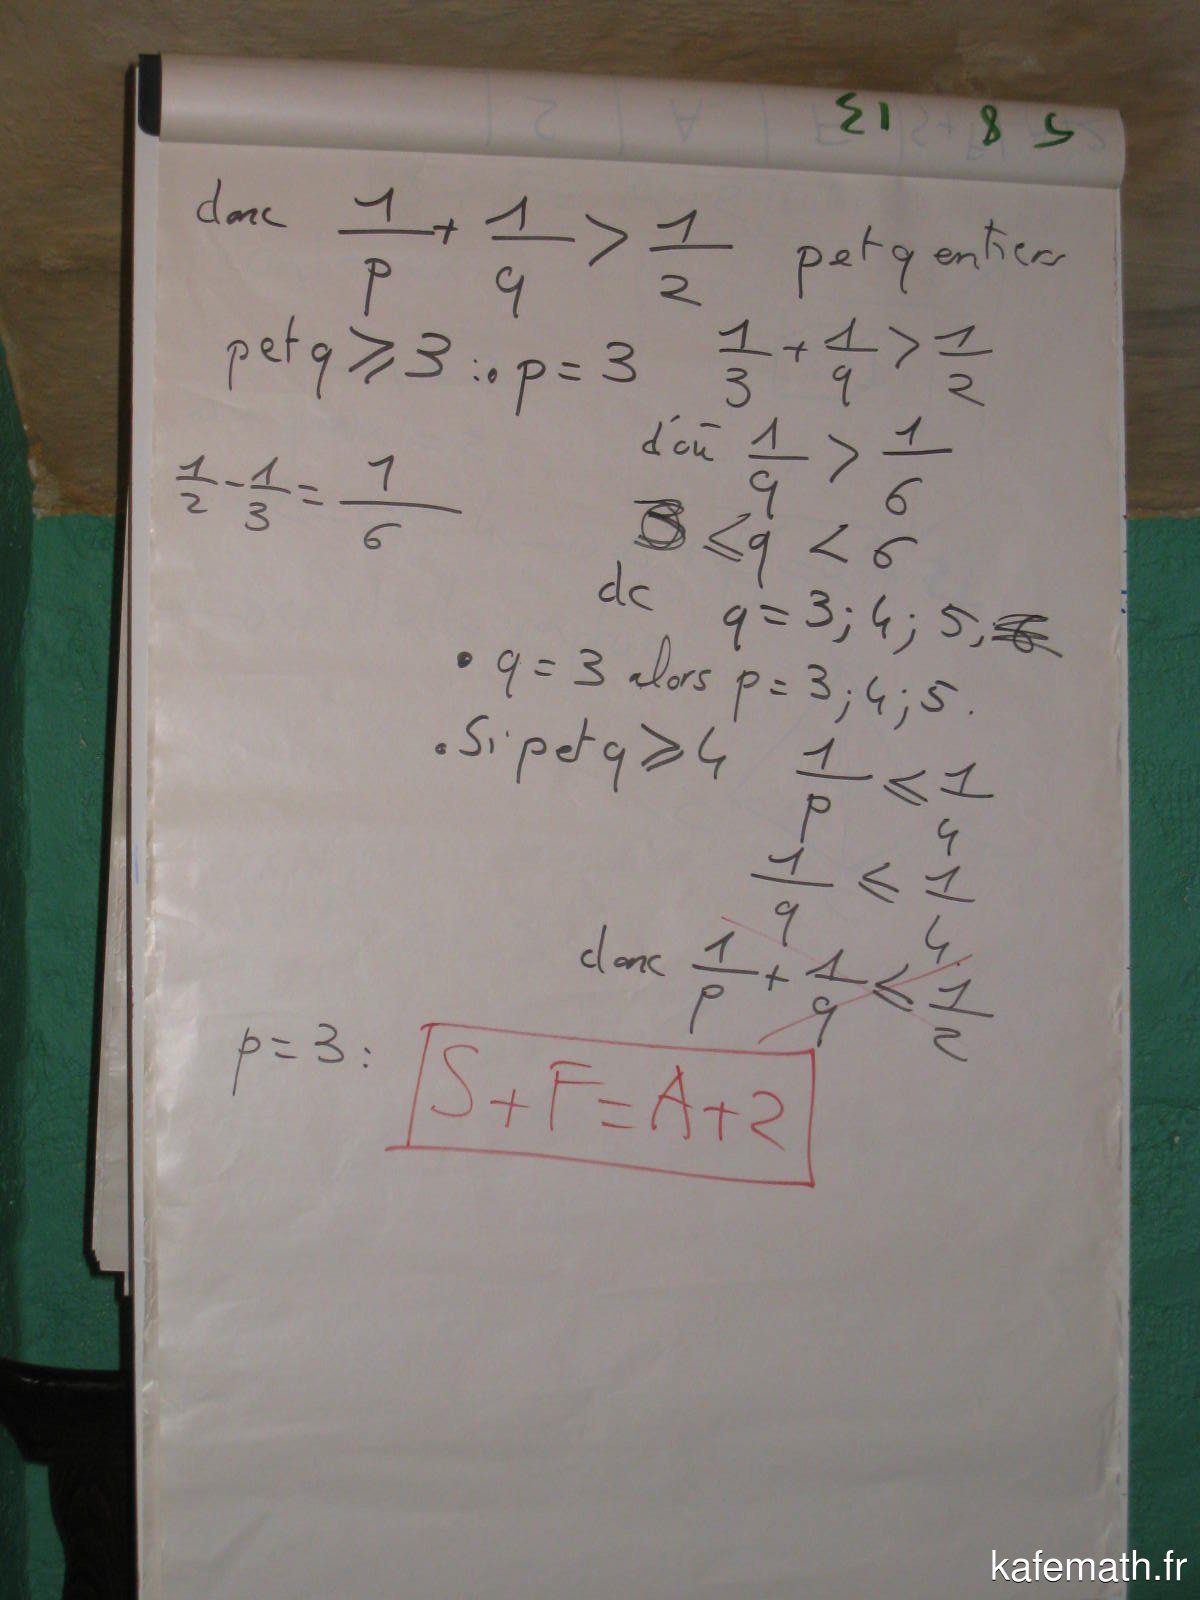 donc 1/p + 1/q > 1/2 p et q entiers
p et q ⩾ 3 : • p = 3 1/3 + 1/q > 1/2
d'où 1/q > 1/6
1/2 - 1/3 = 1/6
3 ⩽ q < 6
dc q = 3 ; 4 ; 5,
• q = 3 alors p = 3 ; 4 ; 5.
• Si p et q ⩾ 4 1/p ⩽ 1/4
1/q ⩽ 1/4.
donc 1/p + 1/q ⩽ 1/2
p = 3 :
S + F = A + 2
kafemath.fr